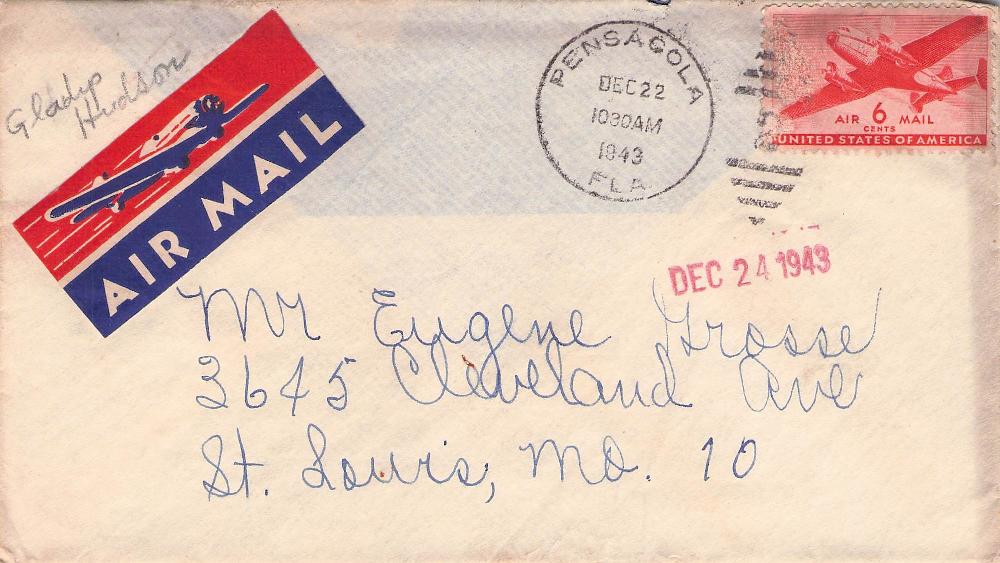 Gladys
Hudson
AIR MAIL
PENSACOLA
DEC 22
1030AM
1943
FLA.
AIR 6 MAIL
CENTS
UNITED STATES OF AMERICA
DEC 24 1943
Mr Eugene Grosse
3645 Cleveland Ave
St. Louis, Mo. 10